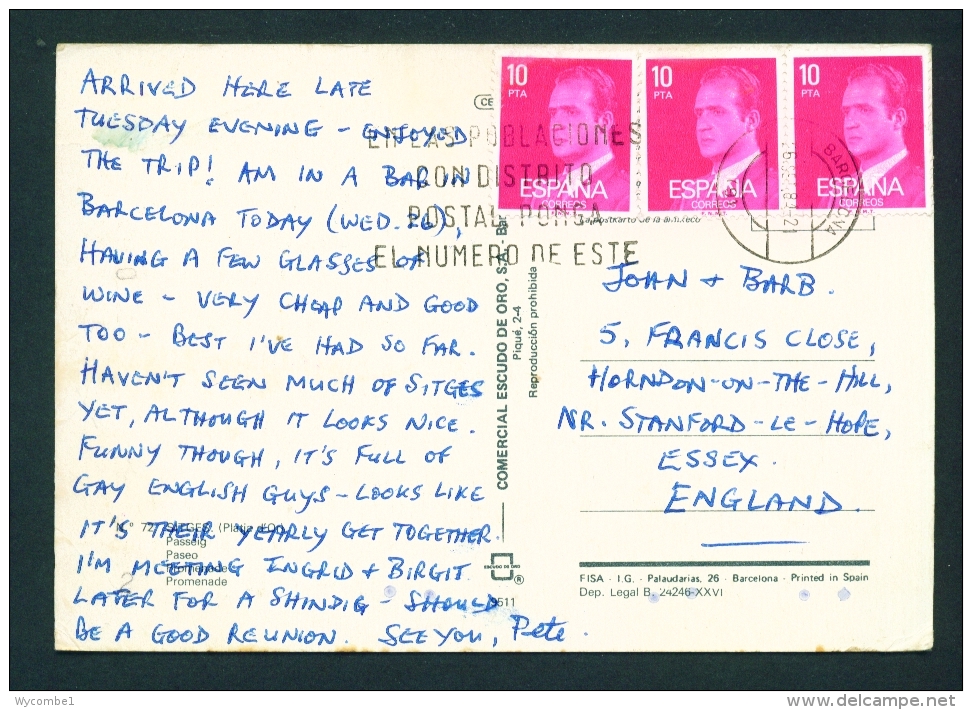 ARRIVED HERE LATE
TUESDAY EVENING - ENJOYED
THE TRIP! AM IN A BAR IN
BARCELONA TODAY (WED. 26),
HAVING A FEW GLASSES OF
WINE - VERY CHEAP AND GOOD
TOO - BEST I'VE HAD SO FAR.
HAVEN'T SEEN MUCH OF SITGES
YET, ALTHOUGH IT LOOKS NICE.
FUNNY THOUGH, IT'S FULL OF
GAY ENGLISH GUYS - LOOKS LIKE
IT'S THEIR YEARLY GET TOGETHER.
I'M MEETING INGRID + BIRGIT
LATER FOR A SHINDIG - SHOULD
BE A GOOD REUNION. SEE YOU, Pete.
N.º 72 SITGES (Platja d'Or)
Passeig
Paseo
Promenade
Promenade
10 PTA
ESPAÑA
CORREOS
10 PTA
ESPAÑA
CORREOS
10 PTA
ESPAÑA
CORREOS
EN LAS POBLACIONES
CON DISTRITO
POSTAL PONGA
EL NUMERO DE ESTE
BARCELONA
COMERCIAL ESCUDO DE ORO, S.A.
Piqué, 2-4
Reproducción prohibida
JOHN + BARB.
5, FRANCIS CLOSE,
HORNDON-ON-THE-HILL,
NR. STANFORD-LE-HOPE,
ESSEX.
ENGLAND.
ESCUDO DE ORO
®
9511
FISA - I.G. - Palaudarias, 26 - Barcelona - Printed in Spain
Dep. Legal B. 24246-XXVI
Wycombe1
www.delcampe.net